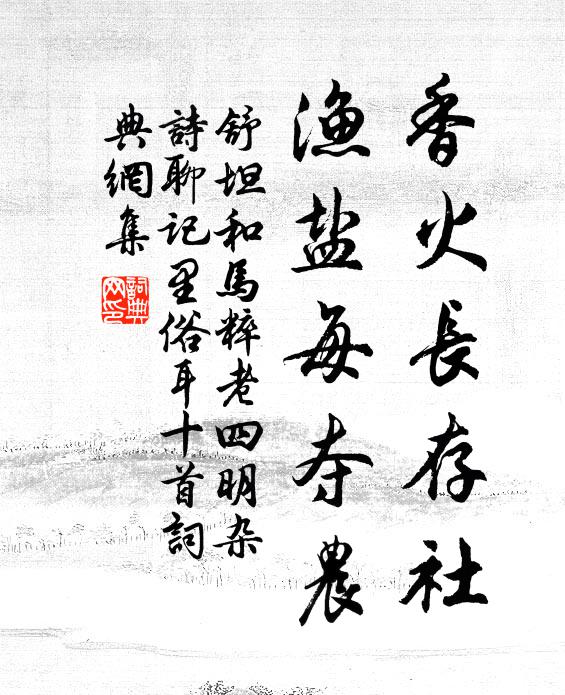 香火長存社
漁盐每夺農
舒坦和馬粹老四明杂
詩聊记里俗耳十首詞
典網集
詞典
网印